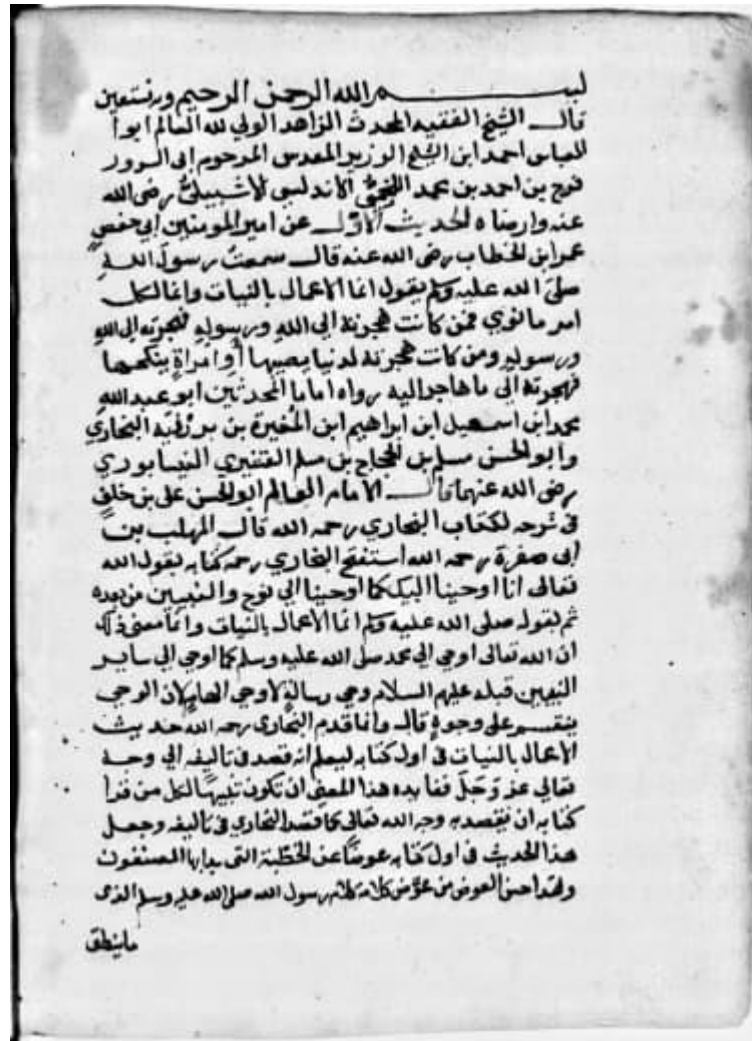 بسم الله الرحمن الرحيم وبه نستعين
قال الشيخ الفقيه المحدث الزاهد الولي لله العالم ابوا
العباس احمد ابن الشيخ الوزير المقدس المرحوم ابى السرور
فرج بن احمد بن محمد اللخمي الاندلسي الاشبيلي رضى الله
عنه وارضاه الحديث الاول عن امير المومنين ابي حفص
عمر ابن الخطاب رضى الله عنه قال سمعت رسول الله
صلى الله عليه وسلم يقول انما الاعمال بالنيات وانما لكل
امر ما نوى فمن كانت هجرته الى الله ورسوله فهجرته الى الله
ورسوله ومن كانت هجرته لدنيا يصيبها أو امراة ينكحها
فهجرته الى ما هاجر اليه رواه اماما المحدثين ابو عبد الله
محمد ابن اسمعيل ابن ابراهيم ابن المغيرة بن بردزبه البخاري
وابو الحسن مسلم بن الحجاج بن مسلم القشيري النيسابوري
رضى الله عنهما قال الامام العالم ابو الحسن على بن خلف
فى شرحه لكتاب البخاري رحمه الله قال المهلب بن
ابى صفرة رحمه الله استفتح البخاري رحمه كتابه بقول الله
تعالى انا اوحينا اليك كما اوحينا الى نوح والنبيين من بعده
ثم بقوله صلى الله عليه وسلم انما الاعمال بالنيات وانما معنى ذلك
ان الله تعالى اوحي الى محمد صلى الله عليه وسلم كما اوحي الى ساير
النبيين قبله عليهم السلام وحي رسالة لا وحي الهام لان الوحي
ينقسم على وجوه قال وانما قدم البخارى رحمه الله حديث
الاعمال بالنيات فى اول كتابه ليعلم انه قصد فى تاليفه الى وجه
تعالى عز وجل ففايده هذا المعنى ان تكون تنبيها لكل من قرا
كتابه ان يقصد به وجه الله تعالى كما قصد البخاري فى تاليفه وجعل
هذا الحديث فى اول كتابه عوضا عن الخطبة التى يبداها المصنفون
ولقد احسن العوض من عوض كلامه كلام رسول الله صلى الله عليه وسلم الذى
ما ينطق